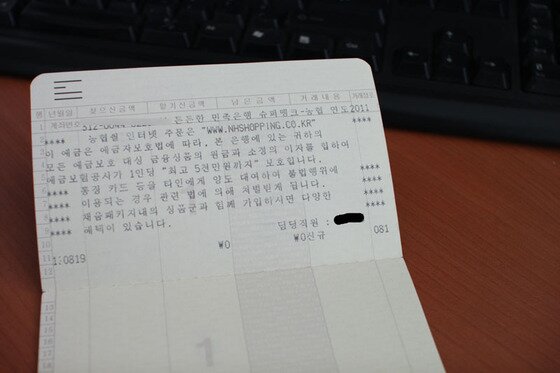 년월일 찾으신금액 맡기신금액 남은금액 거래내용 거래점
1 계좌번호 든든한 민족은행 슈퍼뱅크-농협 인도2011
2 **** 농협월 인터넷 주문은 "WWW.NHSHOPPING.CO.KR" ****
3 이 예금은 예금자보호법에 따라, 본 은행에 있는 귀하의
4 모든 예금보호 대상 금융상품의 원금과 소정의 이자를 합하여
5 예금보험공사가 1인당 "최고 5천만원까지" 보호합니다.
6 **** 통장 카드 등을 타인에게 양도 대여하여 불법행위에 ****
7 **** 이용되는 경우 관련 법에 의해 처벌받게 됩니다. ****
8 **** 재움패키지내의 상품군과 함께 가입하시면 다양한 ****
9 **** 혜택이 있습니다. ****
10 담당직원 :
11 ₩0 ₩0신규 081
1:0819
12
13
10
1